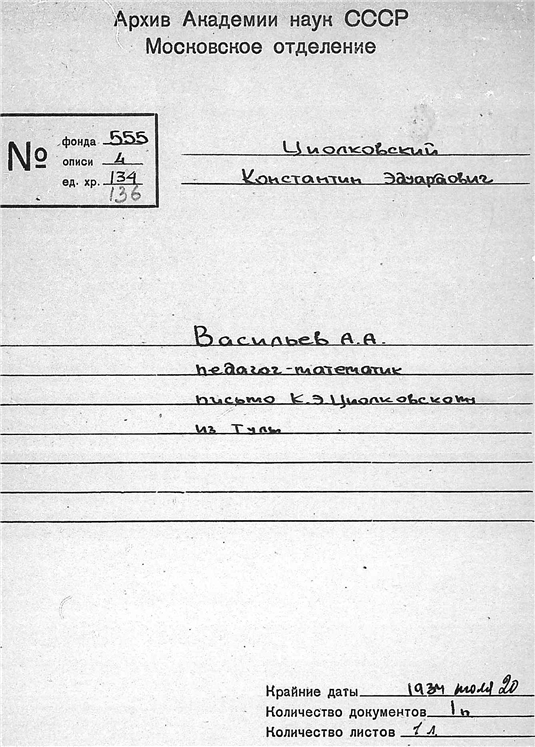 Архив Академии наук СССР
Московское отделение
№
фонда 555
описи 4
ед. хр. 134
136
Циолковский
Константин Эдуардович
Васильев А.А.
педагог-математик
письмо К.Э.Циолковскому
из Тулы
Крайние даты 1934 июля 20
Количество документов 1 п.
Количество листов 1 л.